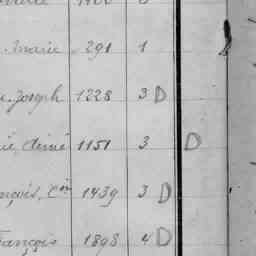 Marie 291 1
Joseph 1228 3 D
1151 3 D
nçois, C.on 1439 3 D
François 1898 4 D